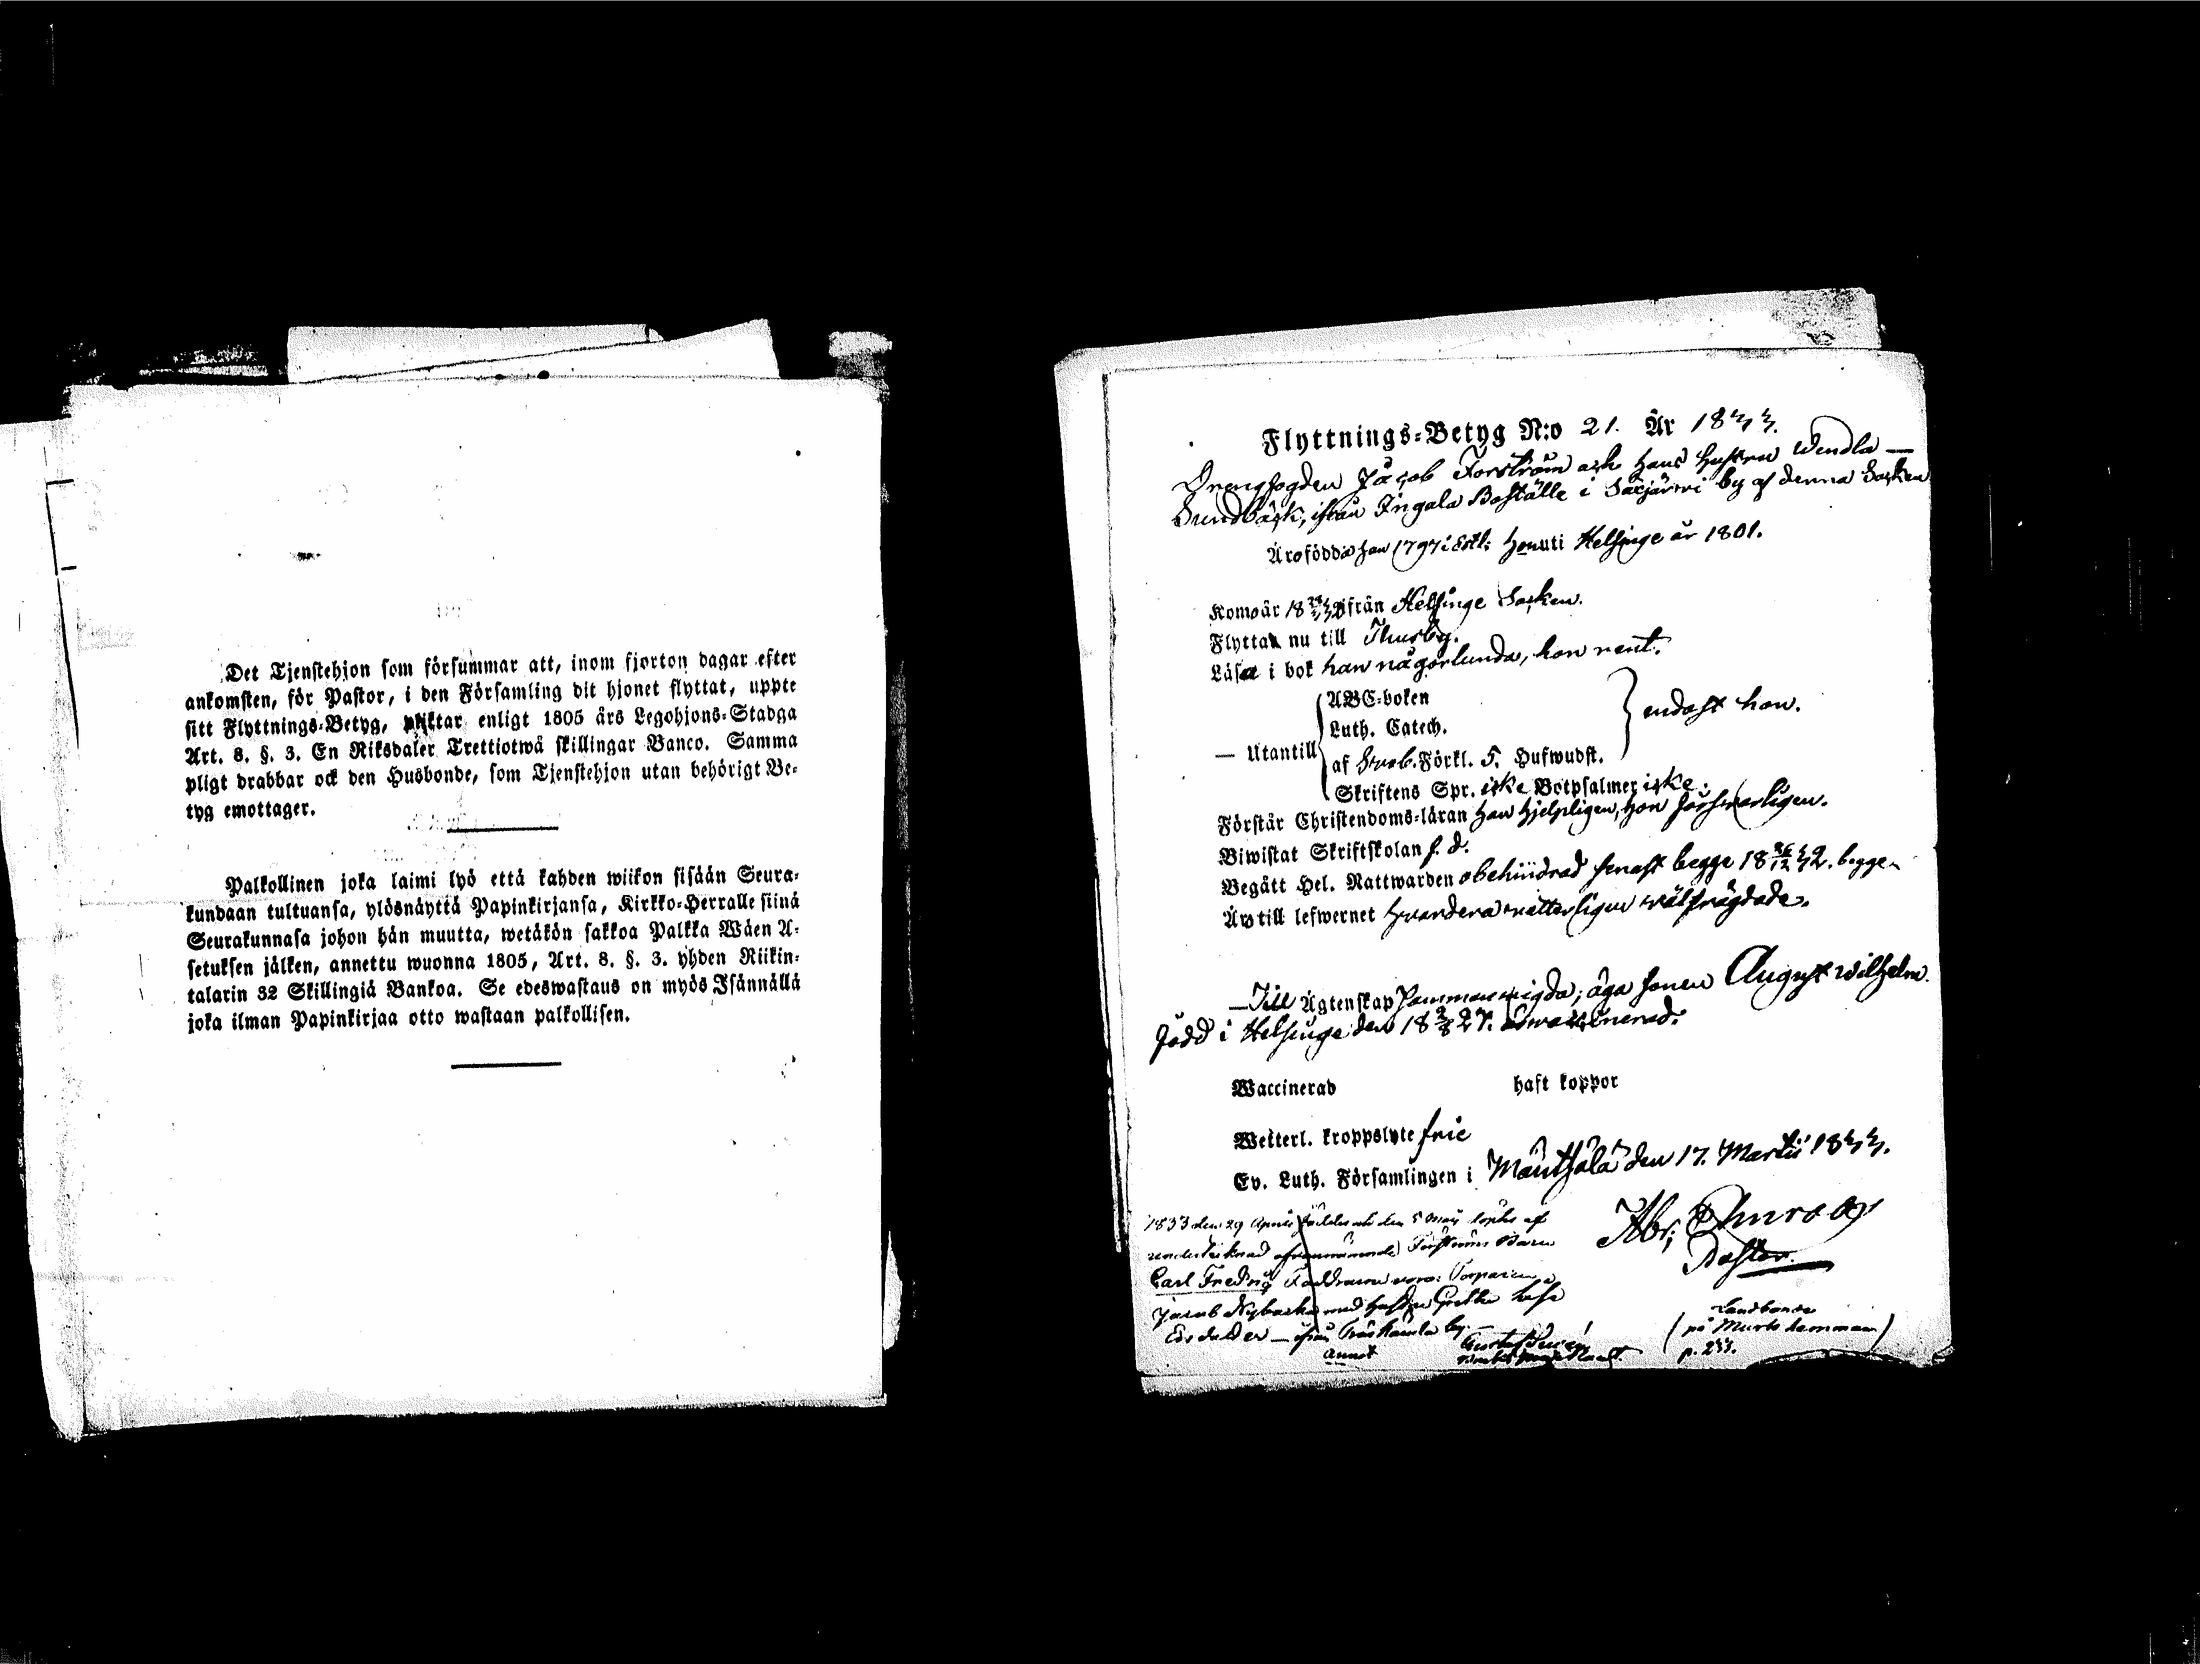 Det Tjenstehjon som försummar att, inom fjorton dagar efter
ankomsten, för Pastor, i den Församling dit hjonet flyttat, uppte
sitt Flyttnings-Betyg, pliktar enligt 1805 års Legohjons-Stadga
Art. 8. §. 3. En Riksdaler Trettiotwå skillingar Banco. Samma
pligt drabbar ock den Husbonde, som Tjenstehjon utan behörigt Be-
tyg emottager.
Palkollinen joka laimi lyö että kahden wiikon sisään Seura-
kundaan tultuansa, ylösnäyttä Papinkirjansa, Kirkko-Herralle siinä
Seurakunnasa johon hän muutta, wetäkön sakkoa Palkka Wäen A-
setuksen jälken, annettu wuonna 1805, Art. 8. §. 3. yhden Riikin-
talarin 32 Skillingiä Bankoa. Se edeswastaus on myös Isännällä
joka ilman Papinkirjaa otto wastaan palkollisen.
Flyttnings-Betyg N:o 21. År 1833.
Drengfogden Jacob Forström och hans hustru Wendla —
Sundbäck, ifrån Ingala Boställe i Saxjärwi by af denna Socken
Äro födde han 1797 i Estl: hon uti Helsinge år 1801.
Komo år 18 från Helsinge Socken.
Flytta nu till Thusby.
Läsa i bok han någorlunda, hon rent.
— Utantill
ABC-boken
Luth. Catech.
af Sweb. Förkl. 5. Hufwudst.
Skriftens Spr. icke Botpsalmer icke.
endast hon.
Förstår Christendoms-läran han hjelpligen, hon förswarligen.
Biwistat Skriftskolan f. d.
Begått Hel. Nattwarden obehindrad senast begge 18 26/12 32. begge
Äro till lefwernet hwardera wälfrägdade.
—Till Ägtenskap sammanwigda; äga sonen August Wilhelm
född i Helsinge den 18 27.
Waccinerad haft koppor
Wetterl. kroppslyte frie
Ev. Luth. Församlingen i Mäntsälä den 17. Martii 1833.
Abr;
Pastor.
1833 den 29 April föddes och den 5 Maij döptes af
undertecknad Forströms Barn
Carl Fredric
Jacob med hustru Greta
ifrån by
Gustaf
(Landbonde
på hemman)
p. 233.